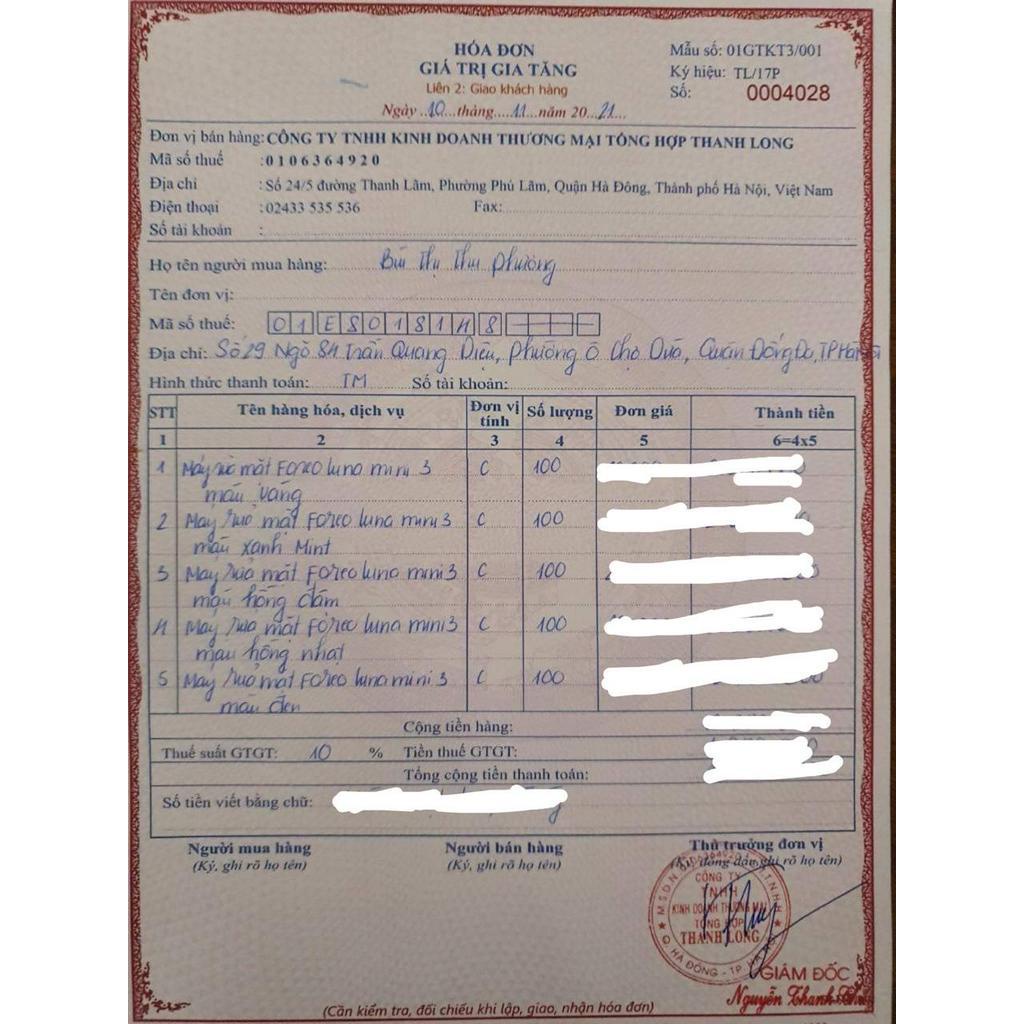 HÓA ĐƠN
GIÁ TRỊ GIA TĂNG
Liên 2: Giao khách hàng
Ngày 10 tháng 11 năm 2021
Mẫu số: 01GTKT3/001
Ký hiệu: TL/17P
Số: 0004028
Đơn vị bán hàng: CÔNG TY TNHH KINH DOANH THƯƠNG MẠI TỔNG HỢP THANH LONG
Mã số thuế : 0106364920
Địa chỉ : Số 24/5 đường Thanh Lãm, Phường Phú Lãm, Quận Hà Đông, Thành phố Hà Nội, Việt Nam
Điện thoại : 02433 535 536 Fax:
Số tài khoản :
Họ tên người mua hàng: Bùi Thị Thu Phương
Tên đơn vị:
Mã số thuế: 01E8018148
Địa chỉ: Số 29 Ngõ 84 Trần Quang Diệu, phường Ô Chợ Dừa, Quận Đống Đa, TP Hà Nội
Hình thức thanh toán: TM Số tài khoản:
STT Tên hàng hóa, dịch vụ Đơn vị tính Số lượng Đơn giá Thành tiền
1 2 3 4 5 6=4x5
1 Máy rửa mặt Foreo luna mini 3 C 100
màu vàng
2 Máy rửa mặt Foreo luna mini 3 C 100
màu xanh Mint
3 Máy rửa mặt Foreo luna mini 3 C 100
màu hồng đậm
4 Máy rửa mặt Foreo luna mini 3 C 100
màu hồng nhạt
5 Máy rửa mặt Foreo luna mini 3 C 100
màu đen
Cộng tiền hàng:
Thuế suất GTGT: 10 % Tiền thuế GTGT:
Tổng cộng tiền thanh toán:
Số tiền viết bằng chữ:
Người mua hàng Người bán hàng Thủ trưởng đơn vị
(Ký, ghi rõ họ tên) (Ký, ghi rõ họ tên) (Ký, đóng dấu, ghi rõ họ tên)
CÔNG TY
TNHH
KINH DOANH THƯƠNG MẠI
TỔNG HỢP
THANH LONG
Q. HÀ ĐÔNG - TP. HÀ NỘI
GIÁM ĐỐC
Nguyễn Thanh
(Cần kiểm tra, đối chiếu khi lập, giao, nhận hóa đơn)